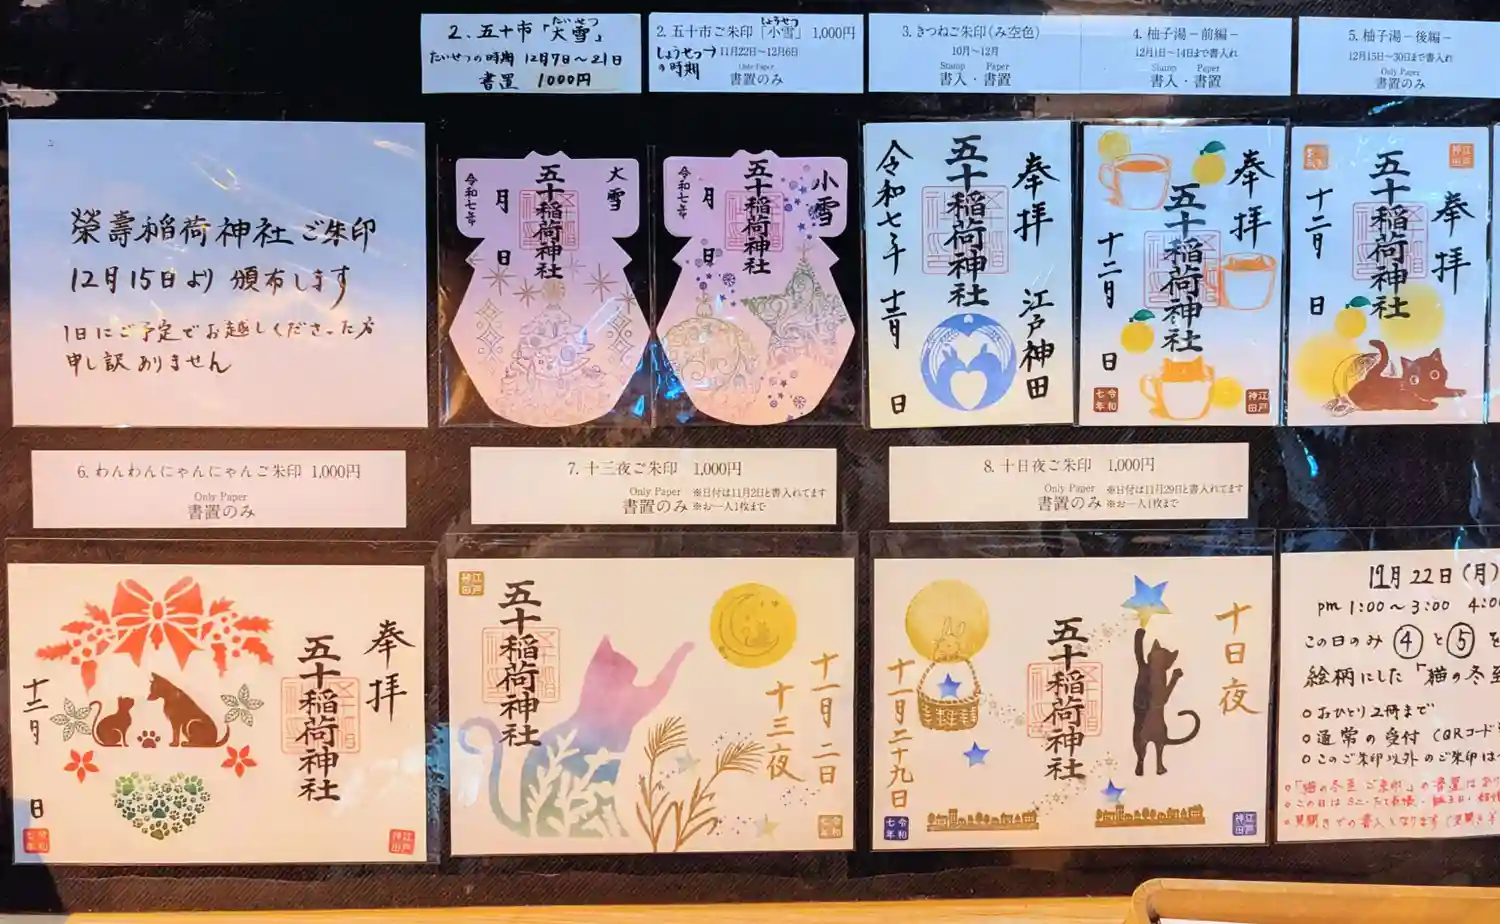 2. 五十市「大雪」
たいせつ
たいせつの時期 12月7日〜21日
書置 1000円
2. 五十市ご朱印「小雪」 1,000円
しょうせつ
しょうせつの時期
11月22日〜12月6日
Only Paper
書置のみ
3. きつねご朱印(み空色)
10月〜12月
Stamp Paper
書入・書置
4. 柚子湯－前編－
12月1日〜14日まで書入れ
Stamp Paper
書入・書置
5. 柚子湯－後編－
12月15日〜30日まで書入れ
Only Paper
書置のみ
榮壽稲荷神社ご朱印
12月15日より 頒布します
1日にご予定でお越しくださった方
申し訳ありません
大雪
五十稲荷神社
令和七年
月 日
小雪
五十稲荷神社
令和七年
月 日
奉拝
江戸神田
五十稲荷神社
令和七年 十二月 日
奉拝
五十稲荷神社
十二月 日
令和七年
江戸神田
奉拝
五十稲荷神社
十二月 日
江戸神田
6. わんわんにゃんにゃんご朱印 1,000円
Only Paper
書置のみ
7. 十三夜ご朱印 1,000円
Only Paper ※日付は11月2日と書入れてます
書置のみ ※お一人1枚まで
8. 十日夜ご朱印 1,000円
Only Paper ※日付は11月29日と書入れてます
書置のみ ※お一人1枚まで
奉拝
五十稲荷神社
十二月 日
令和七年
江戸神田
江戸神田
五十稲荷神社
十一月二日
十三夜
令和七年
十日夜
五十稲荷神社
十一月二十九日
令和七年
江戸神田
12月22日(月)
pm 1:00〜3:00 4:00
この日のみ ④と⑤を
絵柄にした「猫の冬至
○おひとり2冊まで
○通常の受付 (QRコード
○このご朱印以外のご朱印は
○「猫の冬至ご朱印」の書置は
○この日はミニ・
○見開きでの書入となります